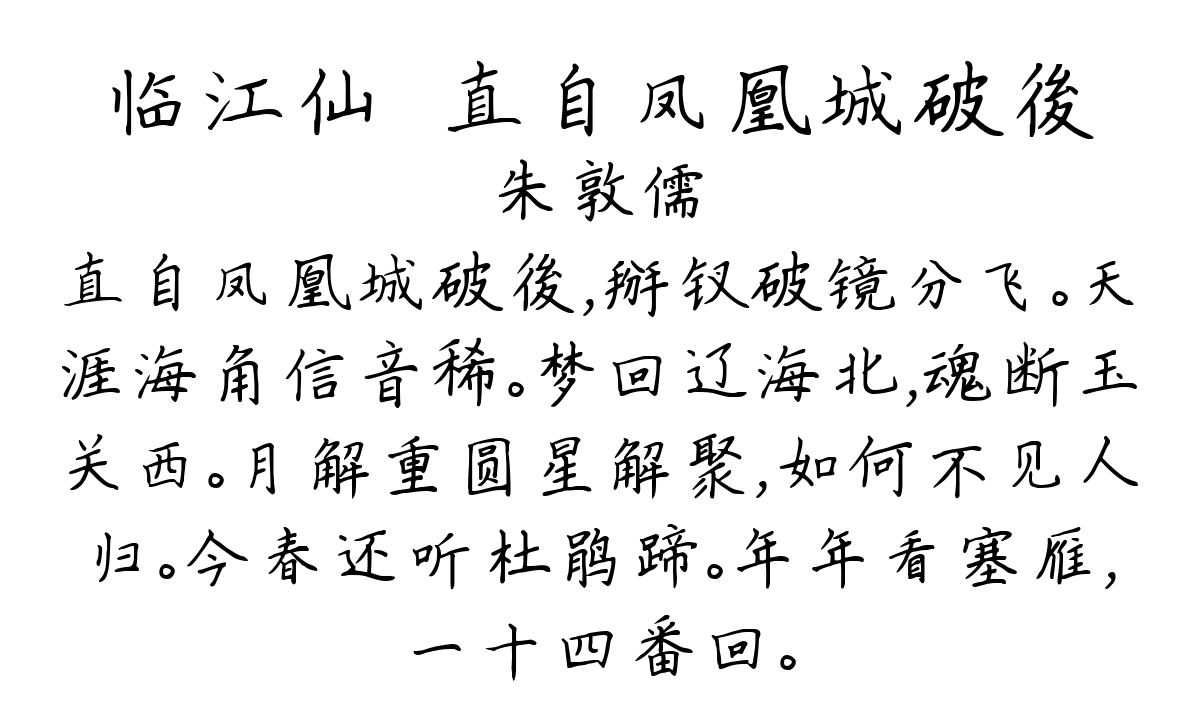 临江仙 直自凤凰城破後
朱敦儒
直自凤凰城破後,擘钗破镜分飞。天
涯海角信音稀。梦回辽海北,魂断玉
关西。月解重圆星解聚,如何不见人
归。今春还听杜鹃蹄。年年看塞雁,
一十四番回。